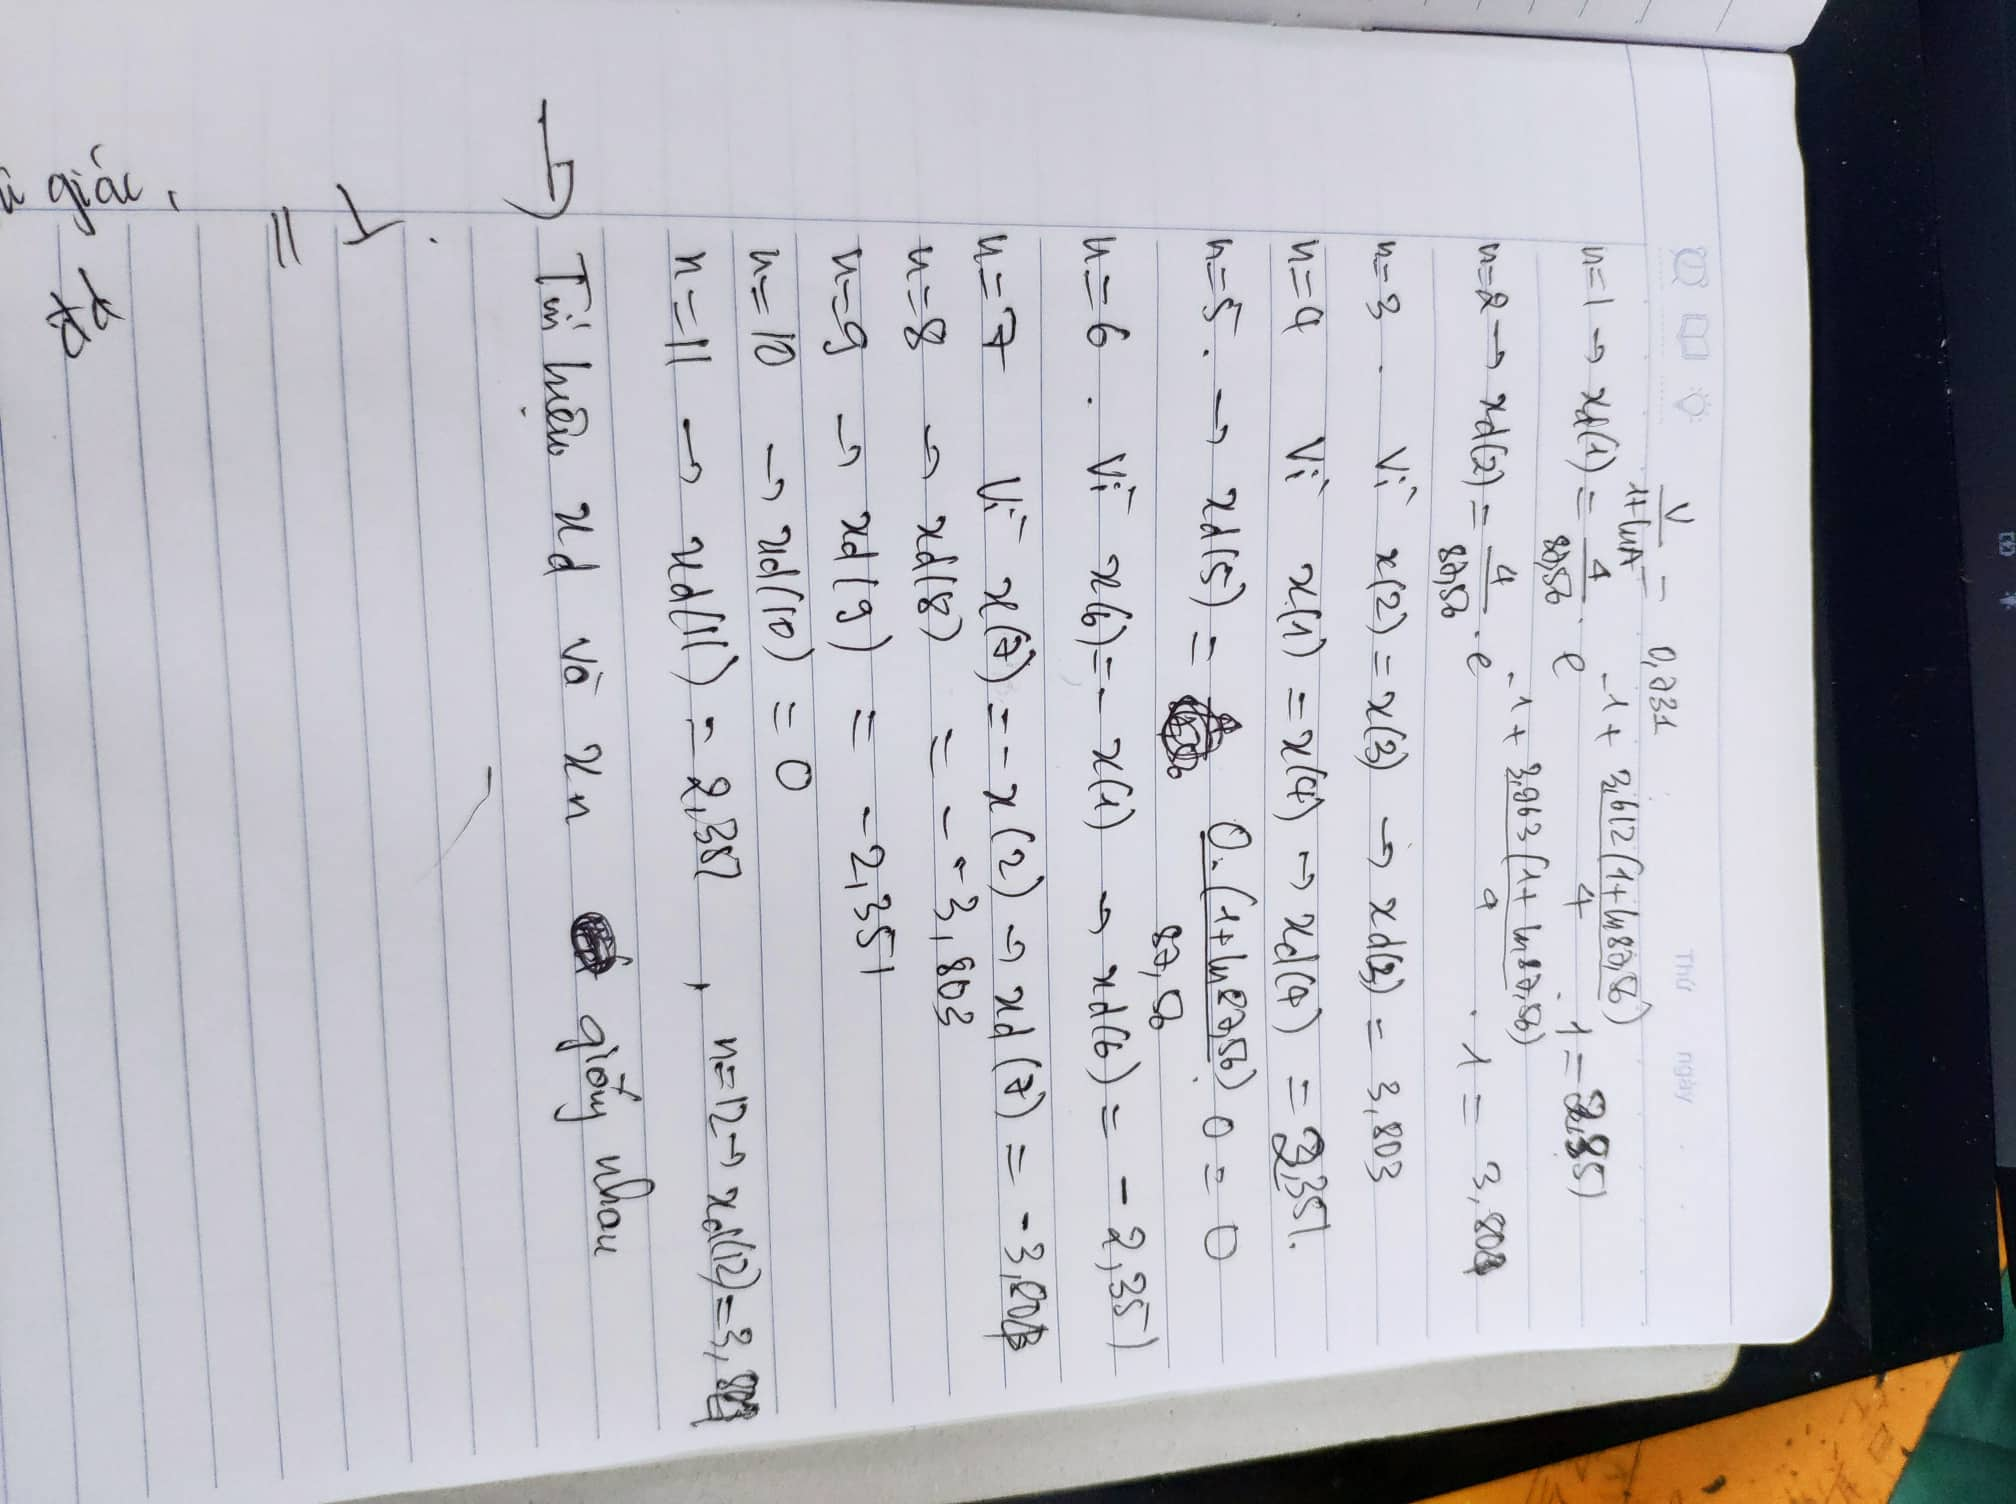 Thứ ngày
V / 1+lnA = 0,731
n=1 → xd(1) = 4/87,56 . e^(-1 + 3,612(1+ln87,56)/4) . 1 = 2,351
n=2 → xd(2) = 4/87,56 . e^(-1 + 3,963(1+ln87,56)/4) . 1 = 3,803
n=3 . Vì x(2) = x(3) → xd(3) = 3,803
n=4 Vì x(1) = x(4) → xd(4) = 2,351.
n=5. → xd(5) = 0.(1+ln87,56)/87,56 . 0 = 0
n=6 . Vì x(6) = - x(1) → xd(6) = - 2,351
n=7 Vì x(7) = - x(2) → xd(7) = - 3,803
n=8 → xd(8) = - 3,803
n=9 → xd(9) = - 2,351
n=10 → xd(10) = 0
n=11 → xd(11) = 2,351 , n=12 → xd(12) = 3,803
→ Tín hiệu xd và xn giống nhau
giác,